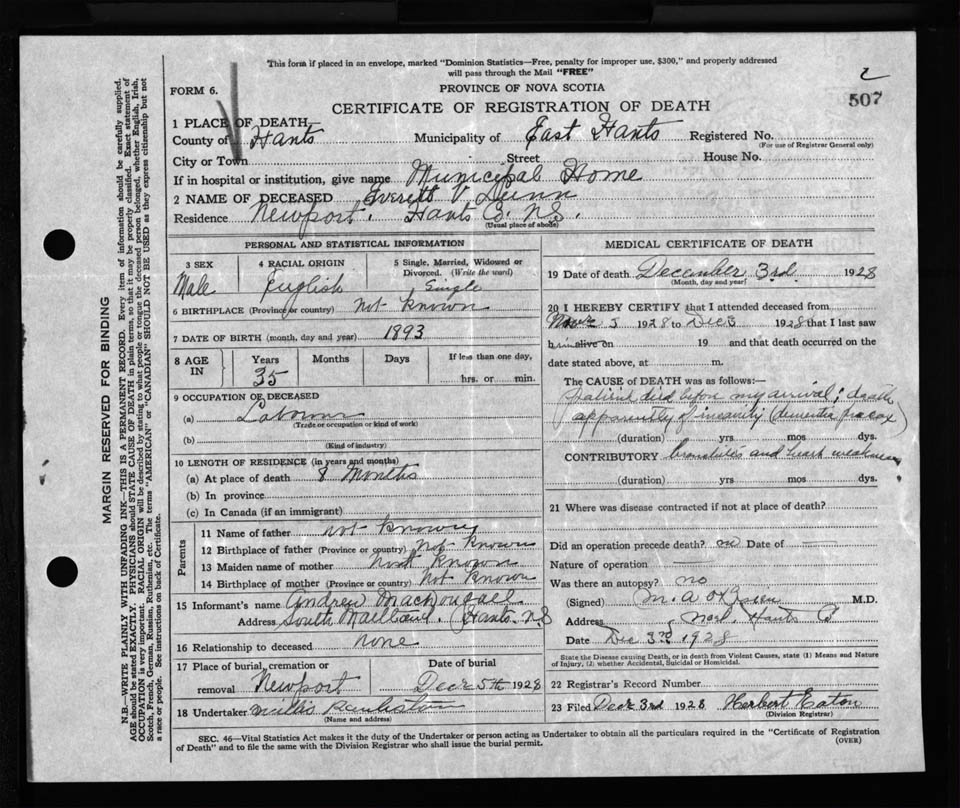 This form if placed in an envelope, marked "Dominion Statistics—Free, penalty for improper use, $300," and properly addressed
will pass through the Mail "FREE"
2
507
FORM 6.
PROVINCE OF NOVA SCOTIA
CERTIFICATE OF REGISTRATION OF DEATH
1 PLACE OF DEATH
County of Hants Municipality of East Hants Registered No.
(For use of Registrar General only)
City or Town Street House No.
If in hospital or institution, give name Municipal Home
2 NAME OF DECEASED Everett V.
Residence Newport. Hants Co. N.S.
(Usual place of abode)
PERSONAL AND STATISTICAL INFORMATION
3 SEX Male
4 RACIAL ORIGIN English
5 Single, Married, Widowed or
Divorced. (Write the word) Single
6 BIRTHPLACE (Province or country) Not known
7 DATE OF BIRTH (month, day and year) 1893
8 AGE IN Years 35 Months Days If less than one day,
hrs. or min.
9 OCCUPATION OF DECEASED
(a)
(Trade or occupation or kind of work)
(b)
(Kind of industry)
10 LENGTH OF RESIDENCE (in years and months)
(a) At place of death 8 Months
(b) In province
(c) In Canada (if an immigrant)
Parents
11 Name of father not known
12 Birthplace of father (Province or country) Not known
13 Maiden name of mother Not known
14 Birthplace of mother (Province or country) Not known
15 Informant's name Andrew MacDougall
Address South Maitland. Hants. N.S
16 Relationship to deceased none
17 Place of burial, cremation or
removal Newport
Date of burial
Dec 5th 1928
18 Undertaker Millis
(Name and address)
MEDICAL CERTIFICATE OF DEATH
19 Date of death December 3rd 1928
(Month, day and year)
20 I HEREBY CERTIFY that I attended deceased from
5 1928 to Dec 3 1928 that I last saw
him alive on 19 and that death occurred on the
date stated above, at m.
The CAUSE OF DEATH was as follows:—
Patient died before my arrival; death
apparently of insanity (dementia praecox)
(duration) yrs mos dys.
CONTRIBUTORY bronchitis and heart weakness
(duration) yrs. mos. dys.
21 Where was disease contracted if not at place of death?
Did an operation precede death? no Date of —
Nature of operation —
Was there an autopsy? no
(Signed) M. A. O'Brien M.D.
Address Noel. Hants Co
Date Dec 3rd 1928
State the Disease causing Death, or in death from Violent Causes, state (1) Means and Nature
of Injury, (2) whether Accidental, Suicidal or Homicidal.
22 Registrar's Record Number
23 Filed Dec 3rd 1928 Herbert Eaton
(Division Registrar)
SEC. 46—Vital Statistics Act makes it the duty of the Undertaker or person acting as Undertaker to obtain all the particulars required in the "Certificate of Registration
of Death" and to file the same with the Division Registrar who shall issue the burial permit.
(OVER)
MARGIN RESERVED FOR BINDING
N.B—WRITE PLAINLY WITH UNFADING INK—THIS IS A PERMANENT RECORD. Every item of information should be carefully supplied.
AGE should be stated EXACTLY. PHYSICIANS should STATE CAUSE OF DEATH in plain terms, so that it may be properly classified. Exact statement of
OCCUPATION is very important. RACIAL ORIGIN will be described by stating to what people or tongue the deceased person belonged, whether English, Irish,
Scotch, French, German, Russian, Ruthenian, etc. The terms "AMERICAN" or "CANADIAN" SHOULD NOT BE USED as they express citizenship but not
a race or people. See instructions on back of Certificate.